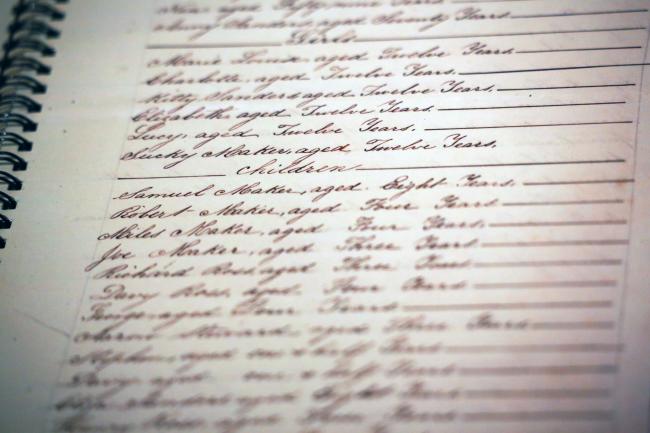 aged Fifty nine Years
aged Seventy Years
Girls
Marie Louise, aged Twelve Years.
Charlotte, aged Twelve Years.
Kitty Sanders aged Twelve Years.
Elizabeth, aged Twelve Years.
Lucy, aged Twelve Years.
Sucky Maker, aged Twelve Years.
Children
Samuel Maker, aged Eight Years.
Robert Maker, aged Four Years.
Miles Maker, aged Four Years.
Joe Maker, aged Three Years.
Richard Ross, aged Three Years.
Davy Ross, aged Four Years
aged Four Years
aged Three Years
Stephen, aged one & half Years
Davy, aged one & half Years
Sanders aged Eight Years
Ross, aged Years